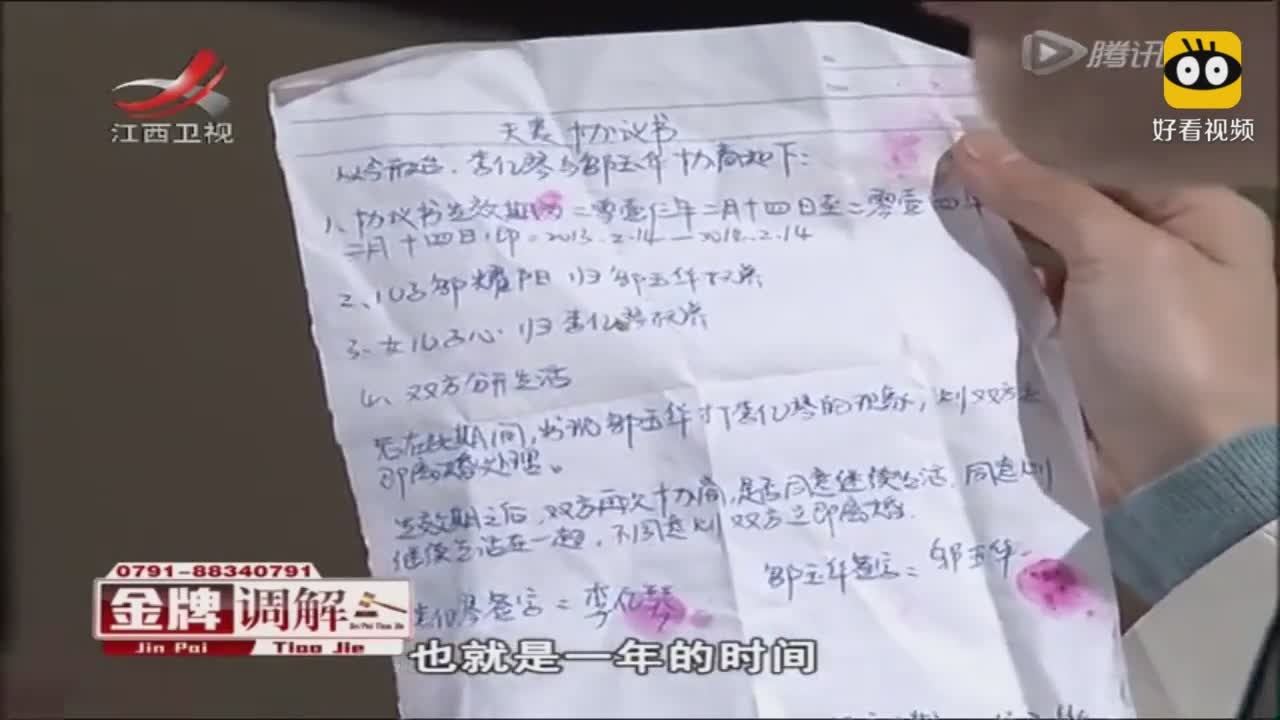 江西卫视
腾讯
好看视频
夫妻协议书
从今开始,李亿琴与邹玉华协商如下:
1、协议书生效期为二零壹仨年二月十四日至二零壹四年
二月十四日,即:2013.2.14—2014.2.14
2、儿子邹耀阳归邹玉华扶养
3.女儿子心归李亿琴扶养
4、双方分开生活
若在此期间,出现邹玉华打李亿琴的现象,则双方立
即离婚处理。
生效期之后,双方再次协商,是否同意继续生活,同意则
继续生活在一起,不同意则双方立即离婚.
邹玉华签字:邹玉华
李亿琴签字:李亿琴
0791-88340791
金牌调解
Jin Pai Tiao Jie
也就是一年的时间